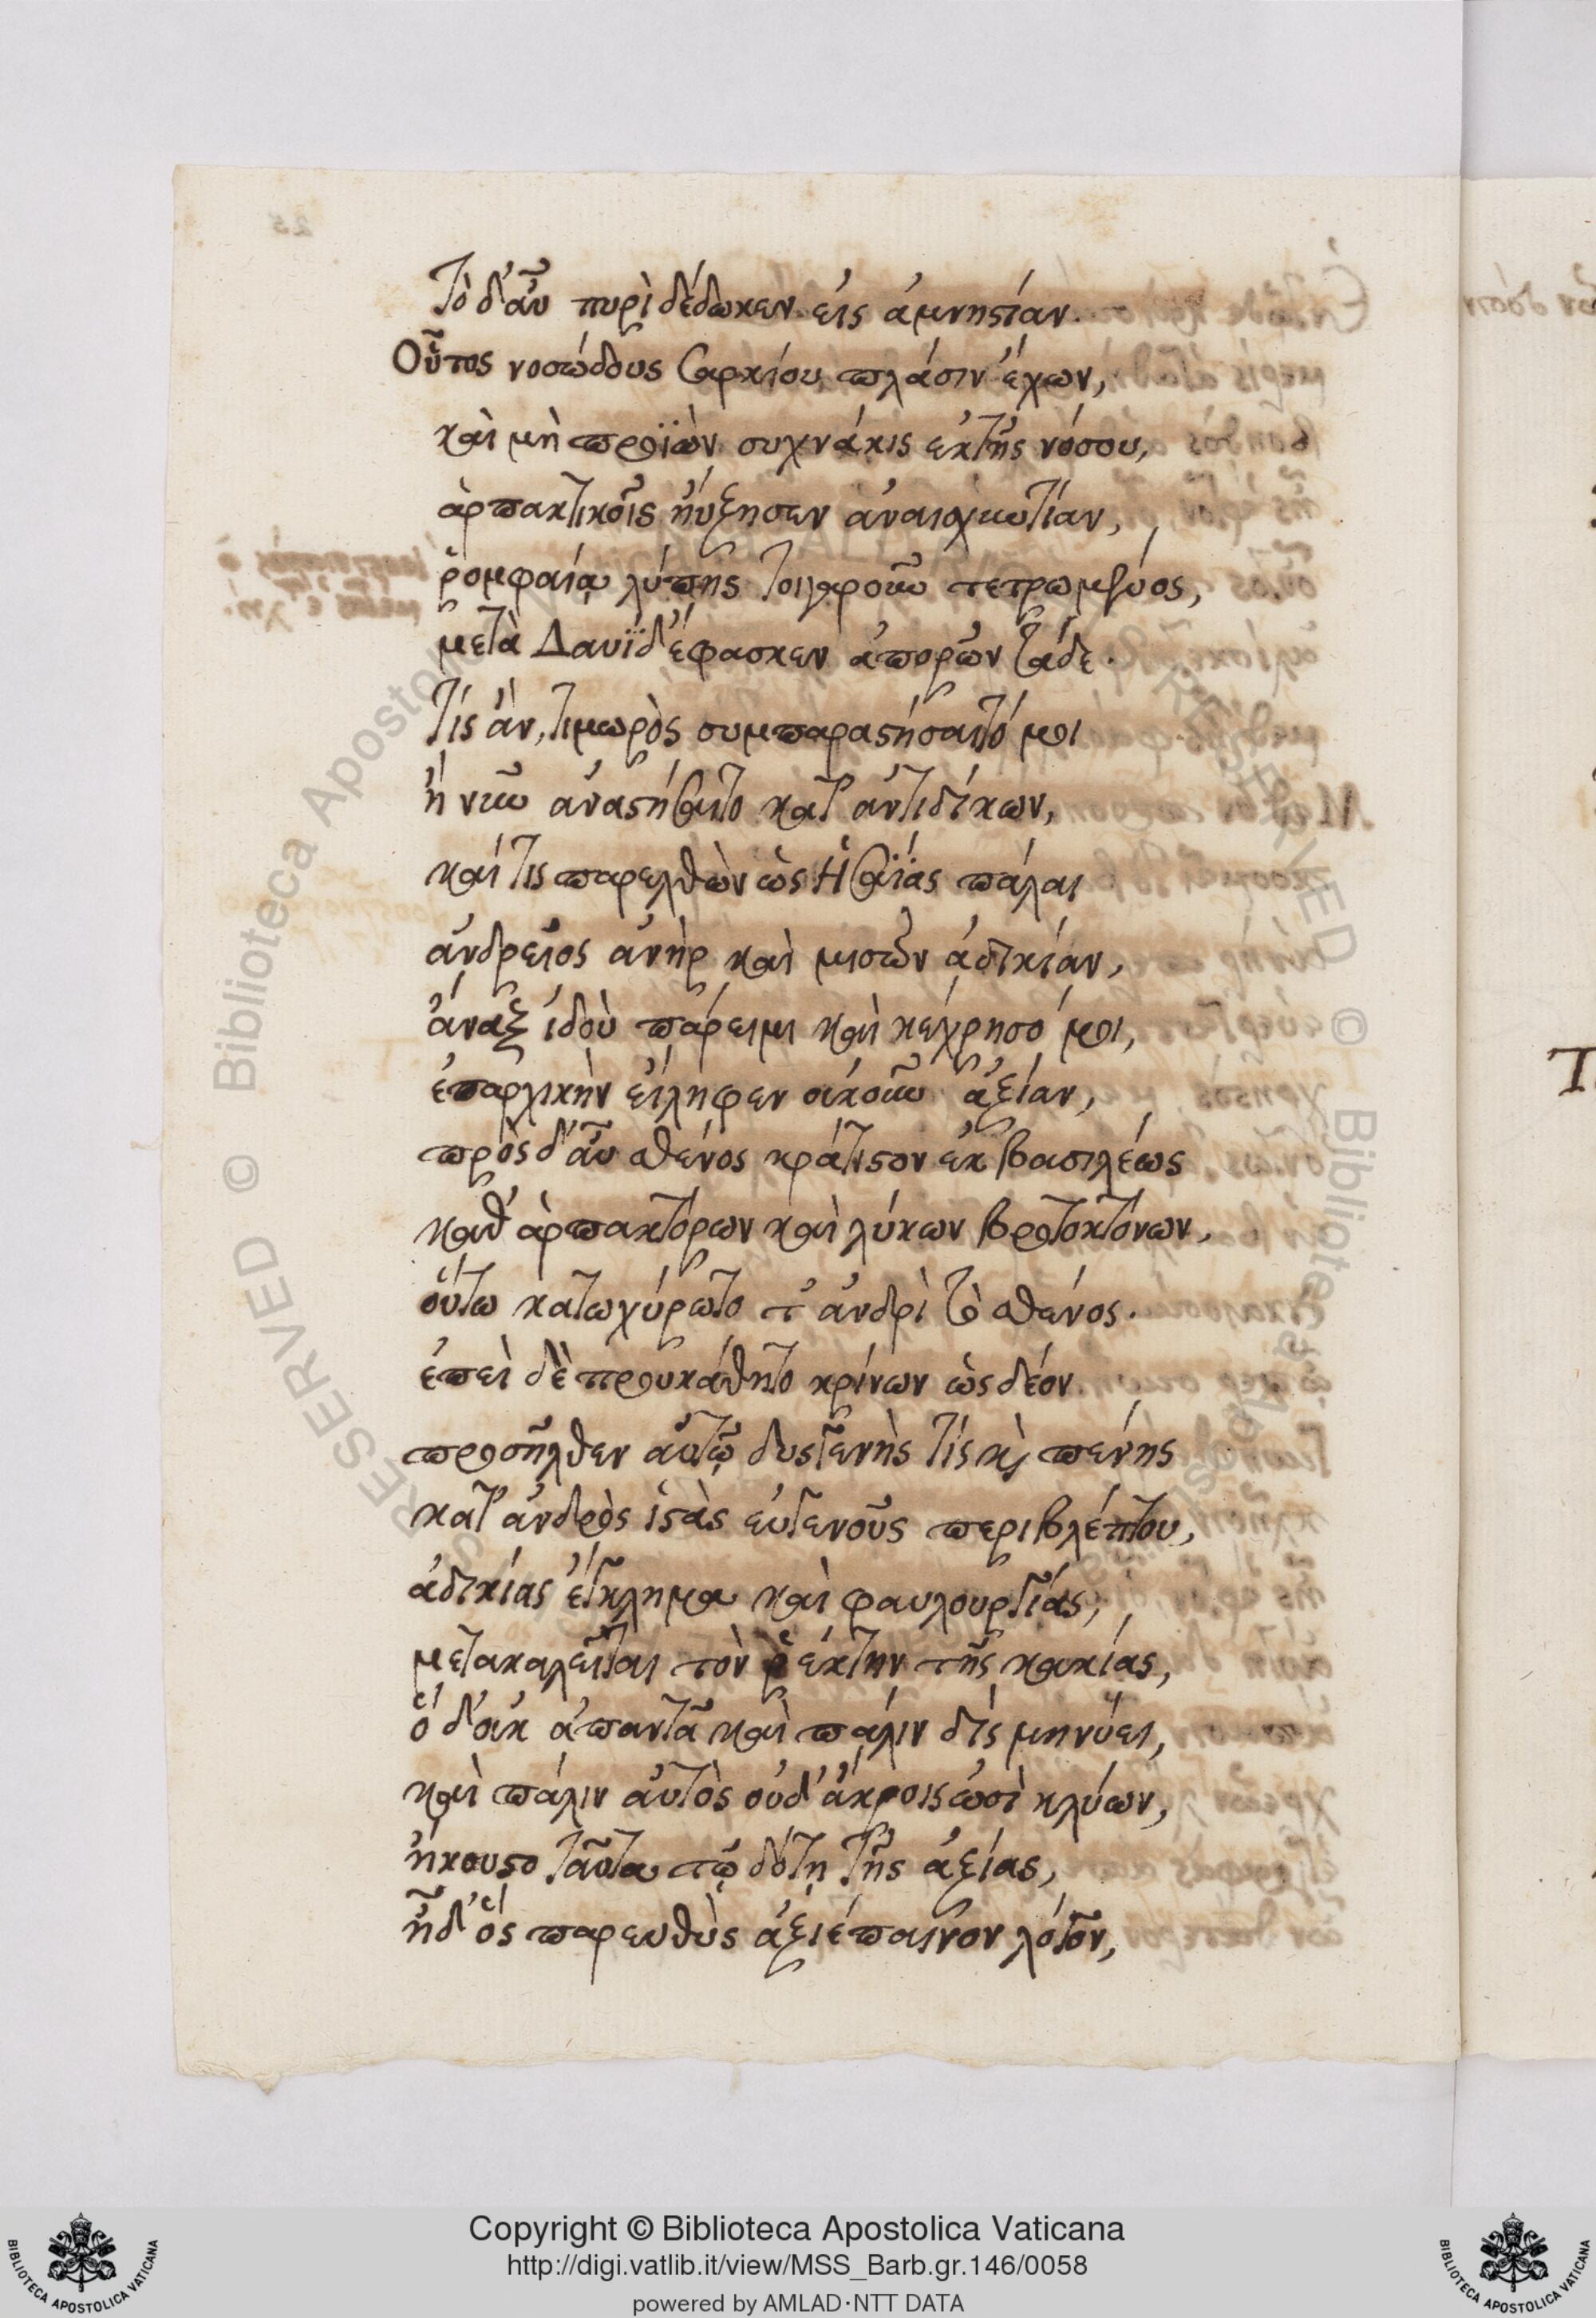 Τὸ δ' αὖ πυρὶ δέδωκεν εἰς ἀμνηστίαν.
Οὗτος νοσώδους σαρκίου πλάσιν ἔχων,
καὶ μὴ προϊὼν συχνάκις ἐκ τῆς νόσου,
ἁρπακτικοῖς ηὔξησεν ἀναισχυντίαν,
ῥομφαίᾳ λύπης τοιγαροῦν τετρωμένος,
μετὰ Δαυῒδ ἔφασκεν ἀπορῶν τάδε.
τίς ἂν τιμωρὸς συμπαραστήσαιτό μοι
ἢ νῦν ἀναστήσαιτο κατ' ἀντιδίκων,
καί τις παρελθὼν ὡς Ἠσαΐας πάλαι
ἀνδρεῖος ἀνὴρ καὶ μισῶν ἀδικίαν,
ἄναξ ἰδοὺ πάρειμι καὶ κέχρησό μοι,
ἐπαρχικὴν εἴληφεν οὐκοῦν ἀξίαν,
πρὸς δ' αὖ σθένος κράτιστον ἐκ βασιλέως
καθ' ἁρπακτόρων καὶ λύκων βροτοκτόνων.
οὕτω κατωχύρωτο τ' ἀνδρὶ τὸ σθένος.
ἐπεὶ δὲ προυκάθητο κρίνων ὡς δέον
προσῆλθεν αὐτῷ δυσγενὴς τίς καὶ πένης
κατ' ἀνδρὸς ἱστὰς εὐγενοῦς περιβλέπτου,
ἀδικίας ἔγκλημα καὶ φαυλουργίας,
μετακαλεῖται τὸν ῥέκτην τῆς κακίας,
ὁ δ' οὐκ ἀπαντᾷ καὶ πάλιν δὶς μηνύει,
καὶ πάλιν αὐτὸς οὐδ' ἄκροις ὠσὶ κλύων,
ἤκουστο ταῦτα τῷ δότῃ τῆς ἀξίας,
ἦ δ' ὃς παρευθὺς ἀξιέπαινον λόγον,
Copyright © Biblioteca Apostolica Vaticana
http://digi.vatlib.it/view/MSS_Barb.gr.146/0058
powered by AMLAD·NTT DATA